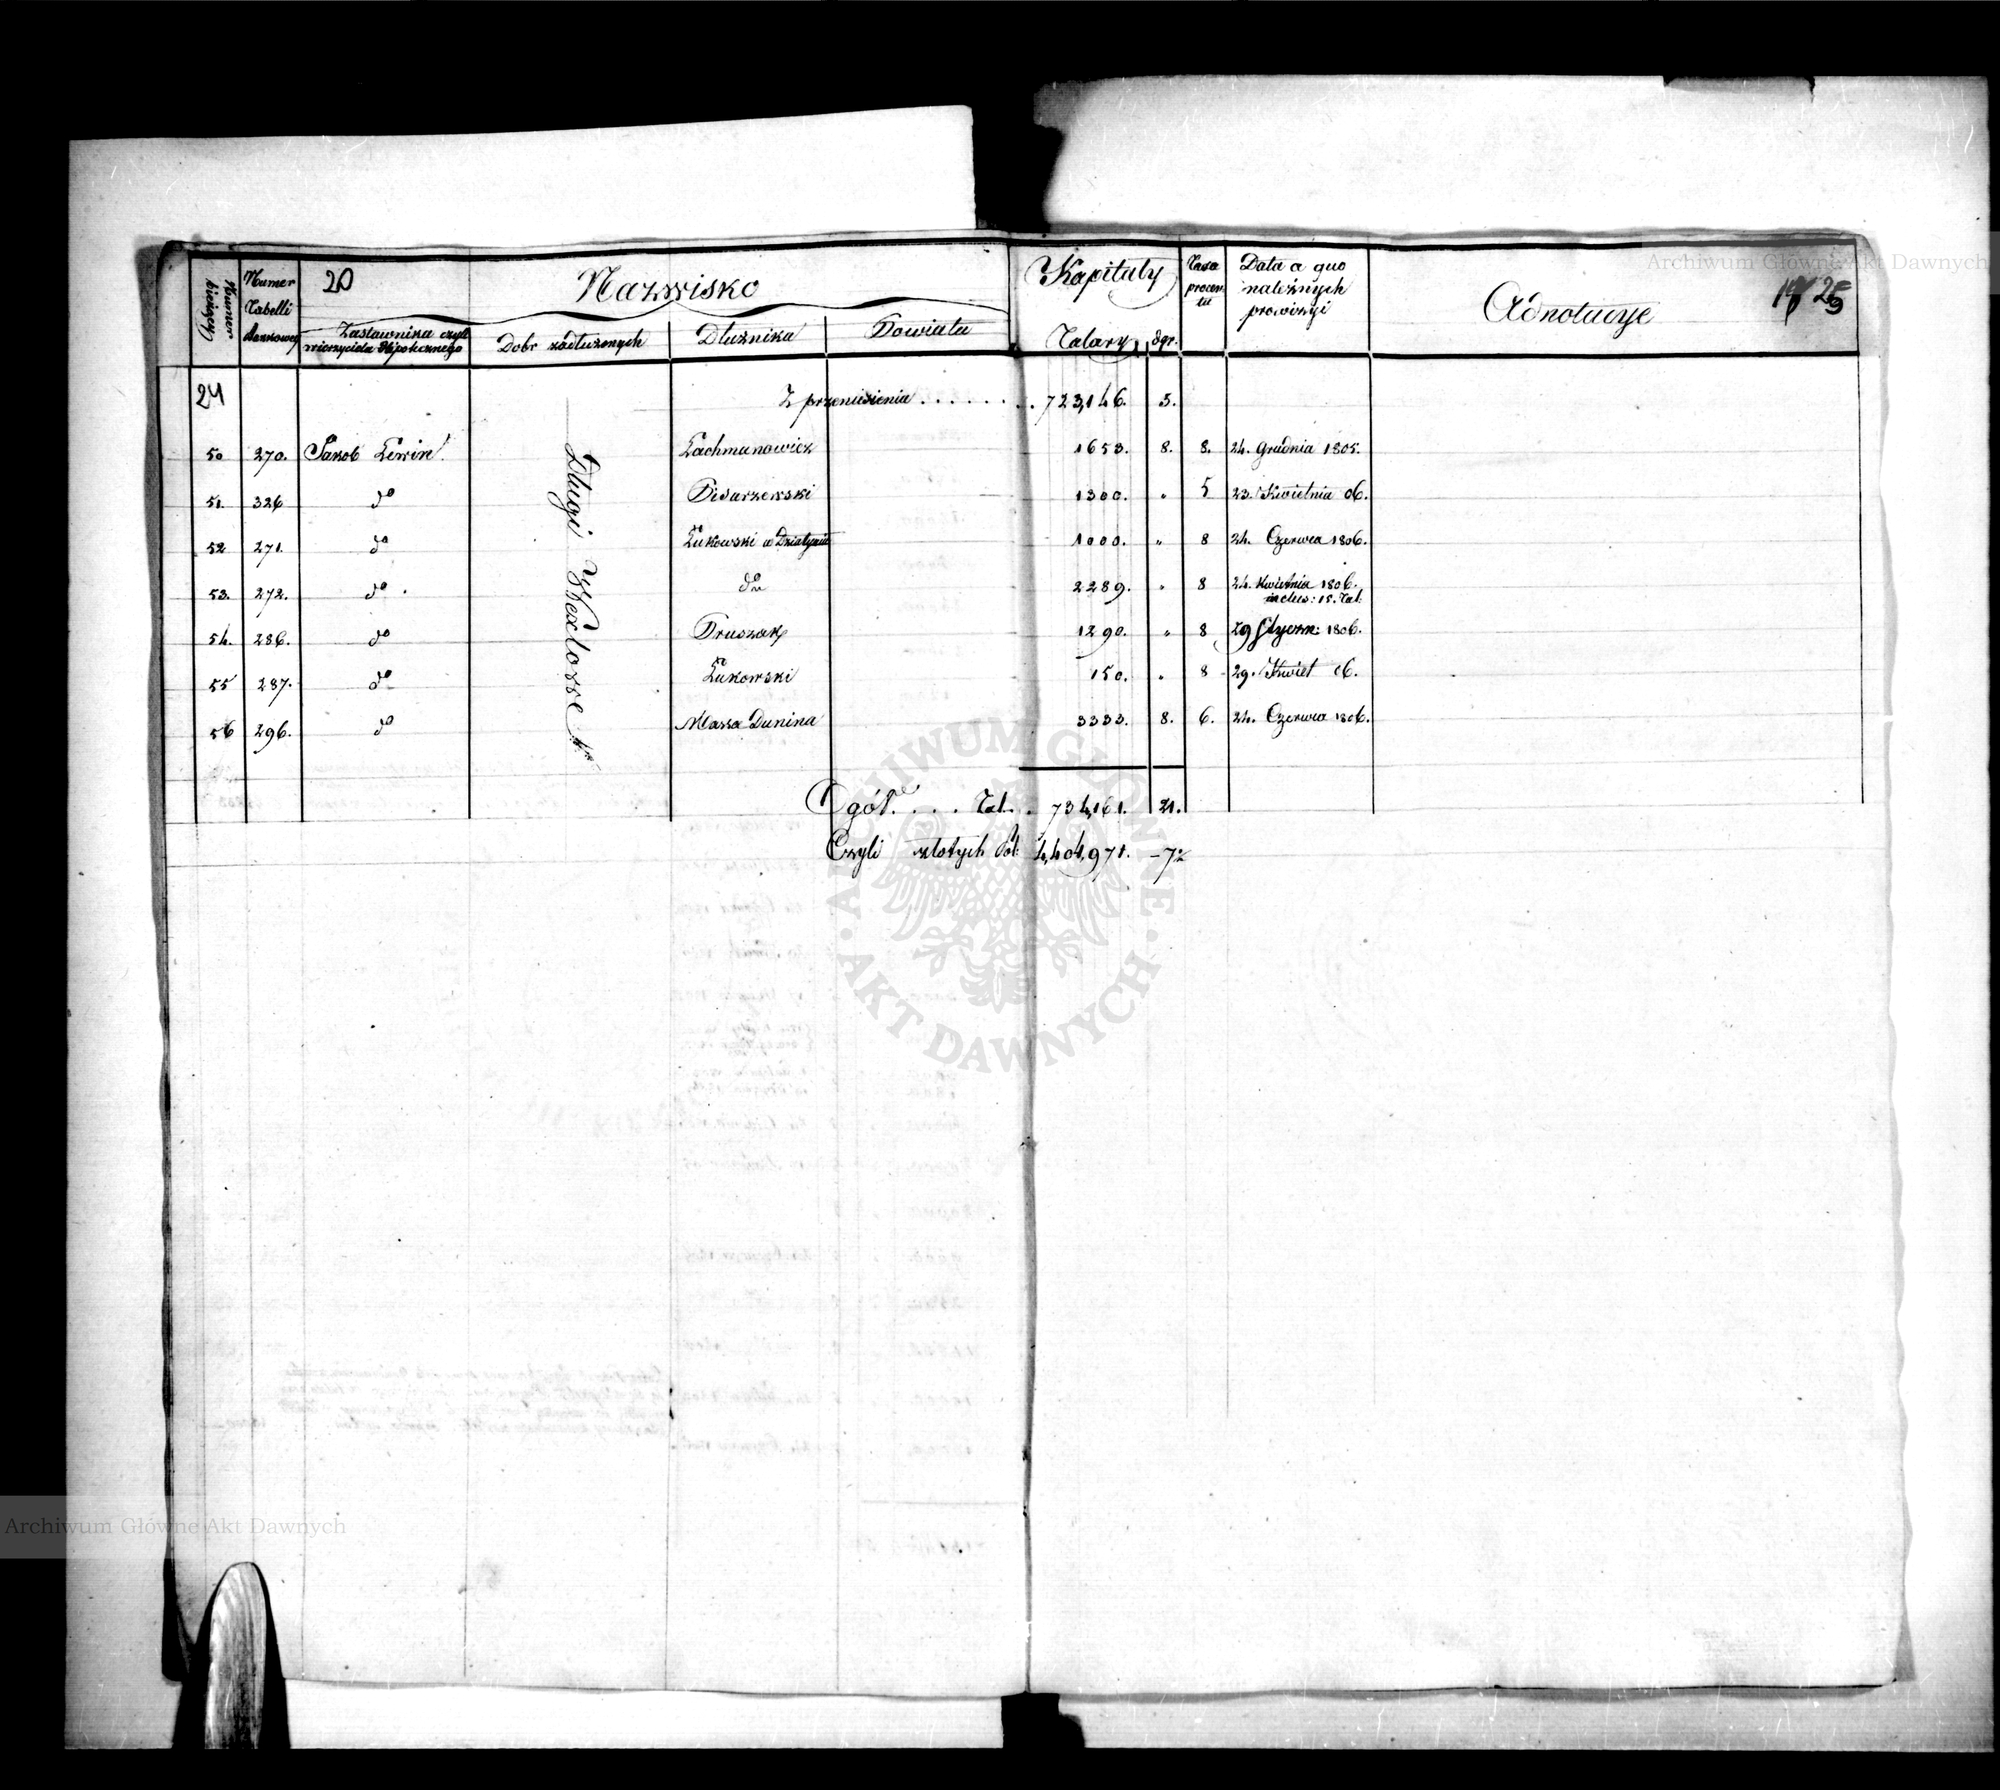 Numer bieżący
Numer Tabelli Bankowey
20
Nazwisko
Zastawnika czyli wierzyciela Hipotecznego
Dobr zadłużonych
Dłużnika
Powiatu
Kapitały
Talary
dgr.
Taxa procentu
Data a quo należnych prowizyi
Adnotacye
25
24
Z przeniesienia . . . . . . . . 723,146. 5.
50 270. Jakob Lewin Lachmanowicz 1653. 8. 8. 24. Grudnia 1805.
51. 326 do Pisarzewski 1300. " 5 23. Kwietnia 06.
52 271. do Łukowski a Działynia 1000. " 8 24. Czerwca 1806.
53. 272. do do 2289. " 8 24. Kwietnia 1806.
inclus: 15. Tal:
54. 286. do Pruszak 1290. " 8 29 Styczn: 1806.
55 287. do Łukowski 150. " 8 29. Kwiet 06.
56 296. do Massa Dunina 3333. 8. 6. 24. Czerwca 1806.
Długi Wexlowe
Ogół . . . . Tal. . 734,161. 21.
Czyli złotych Pol: 4,404,971. -7½
ARCHIWUM GŁÓWNE
· AKT DAWNYCH ·
Archiwum Główne Akt Dawnych
Archiwum Główne Akt Dawnych